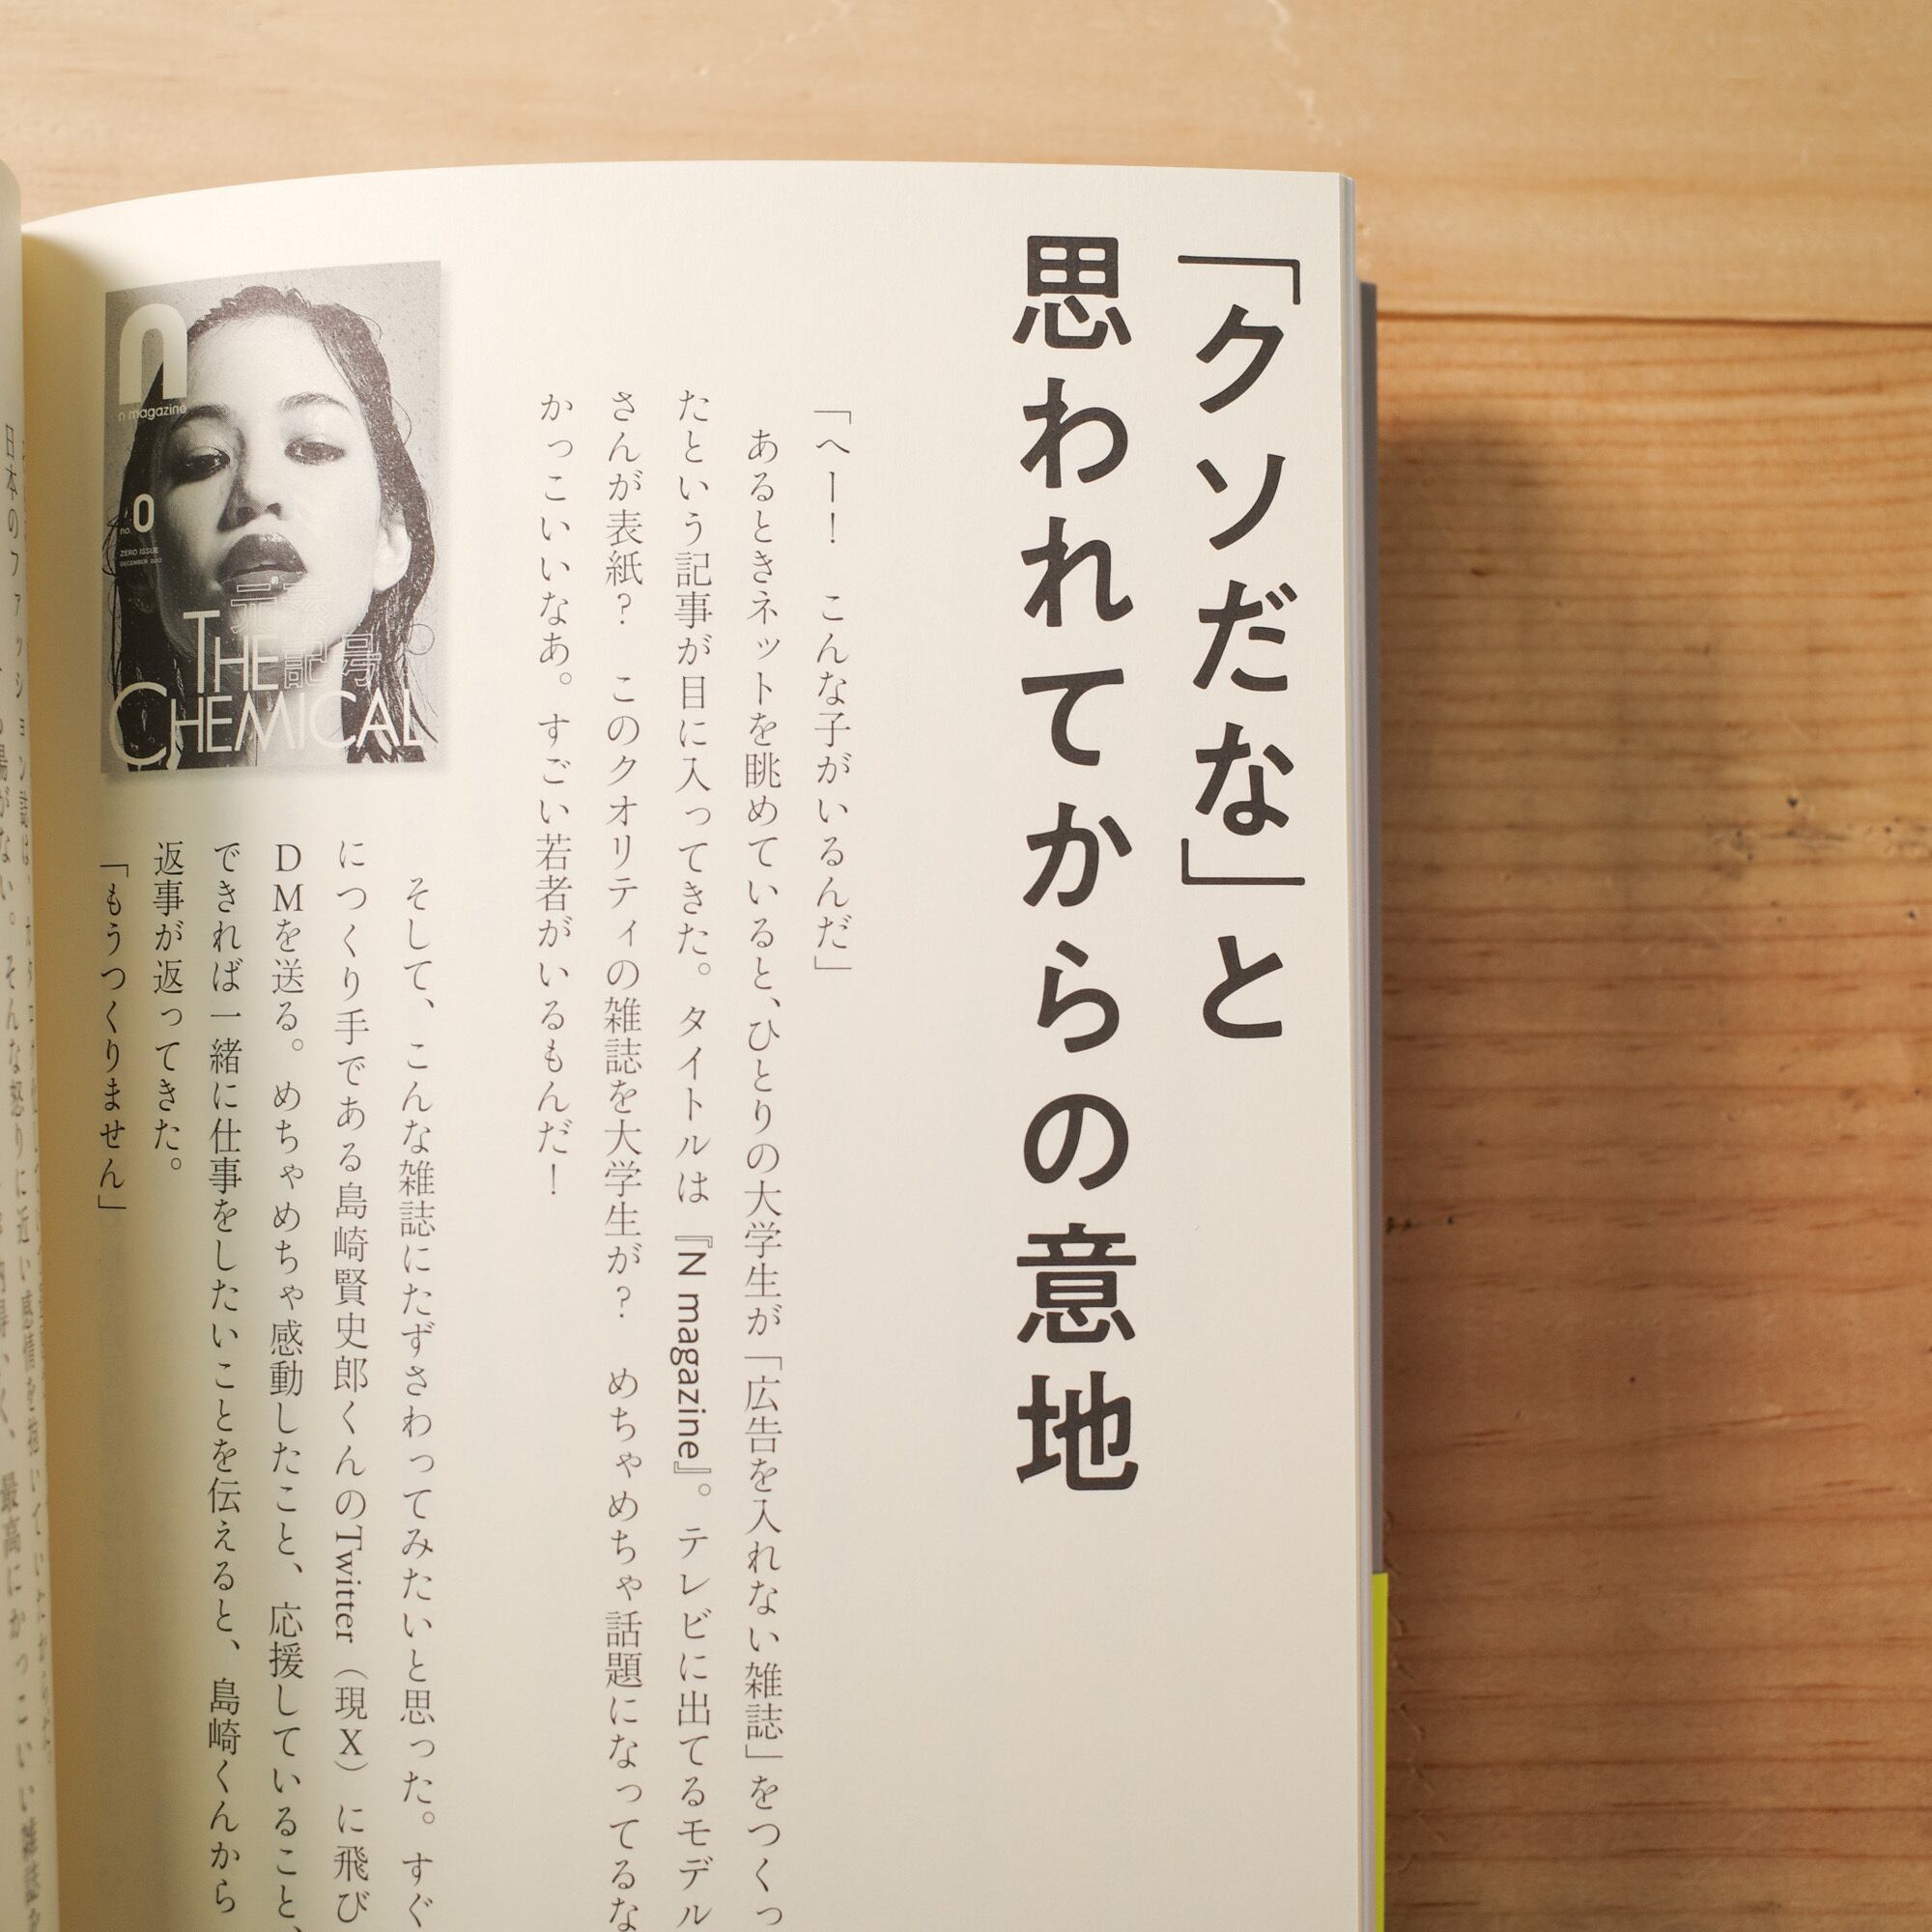 「クソだな」と
思われてからの意地
「へー！　こんな子がいるんだ」
あるときネットを眺めていると、ひとりの大学生が「広告を入れない雑誌」をつくっ
たという記事が目に入ってきた。タイトルは『N magazine』。テレビに出てるモデル
さんが表紙？　このクオリティの雑誌を大学生が？　めちゃめちゃ話題になってるな
かっこいいなあ。すごい若者がいるもんだ！
n
n magazine
no. 0
ZERO ISSUE
DECEMBER
元素
記号
THE
CHEMICAL
そして、こんな雑誌にたずさわってみたいと思った。すぐ
につくり手である島崎賢史郎くんのTwitter（現X）に飛び
DMを送る。めちゃめちゃ感動したこと、応援していること、
できれば一緒に仕事をしたいことを伝えると、島崎くんから
返事が返ってきた。
「もうつくりません」
日本のファッション誌は、
場がない。そんな怒りに近い感情を抱いていた
最高にかっこいい雑誌を